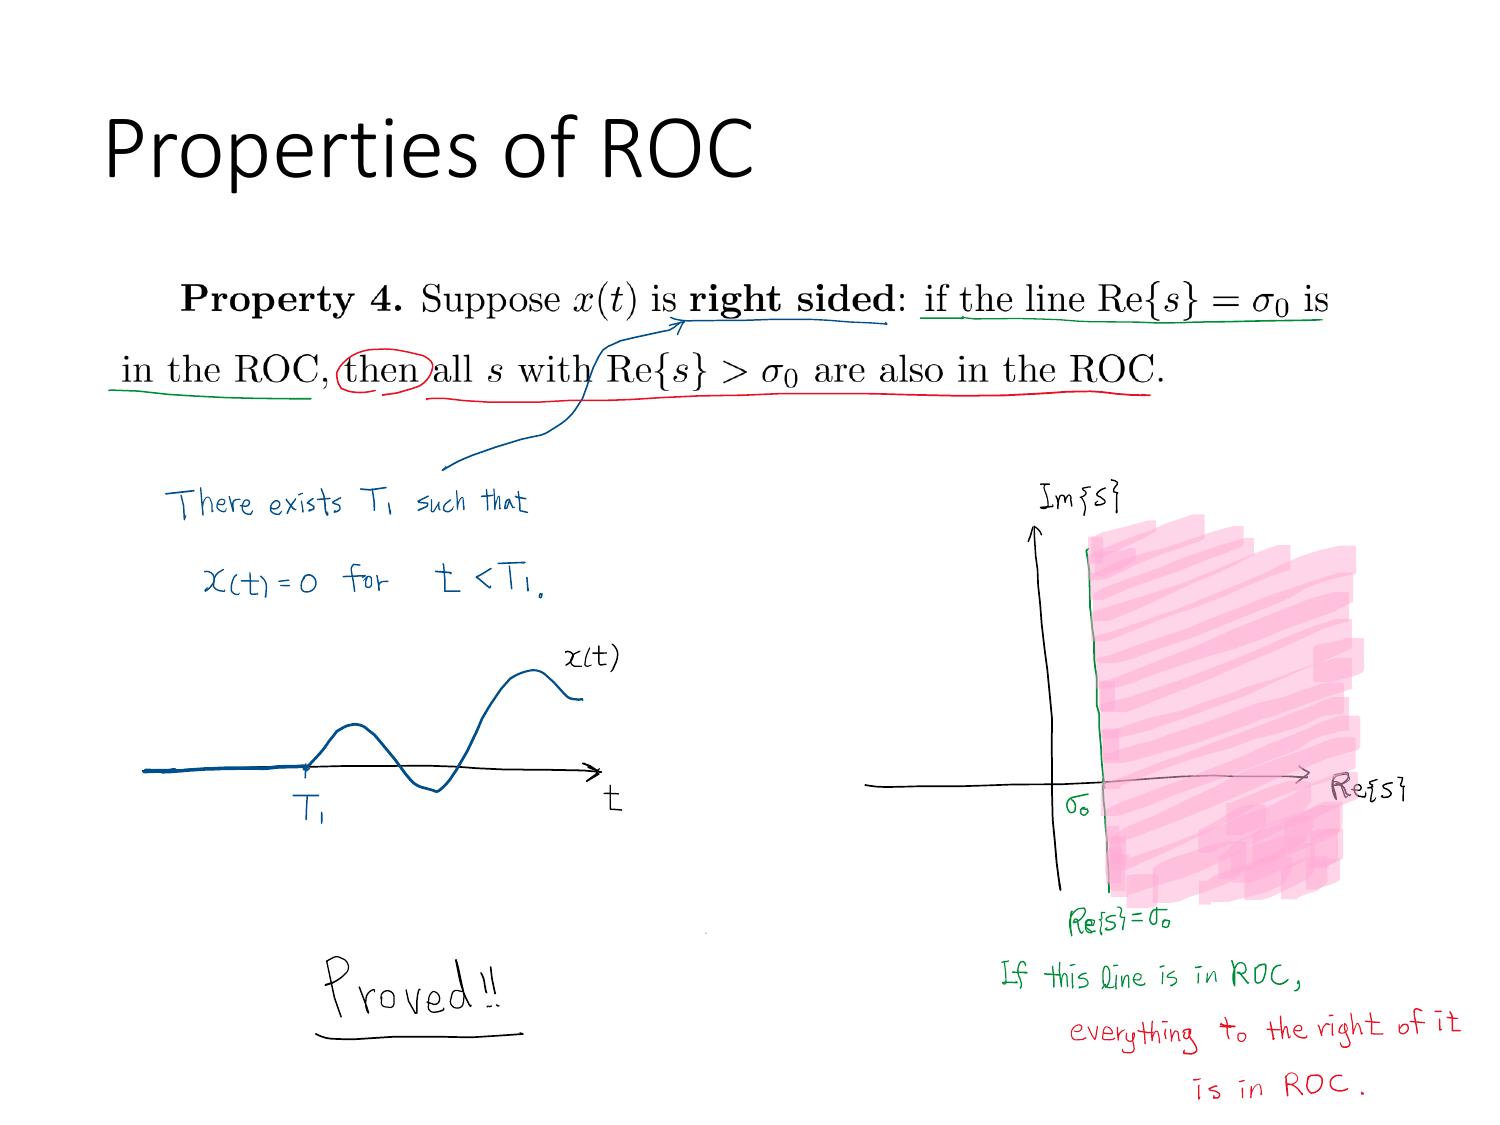 Properties of ROC
Property 4. Suppose x(t) is right sided: if the line Re{s} = σ₀ is
in the ROC, then all s with Re{s} > σ₀ are also in the ROC.
There exists T₁ such that
x(t) = 0 for t < T₁.
x(t)
T₁
t
Proved!!
Im{s}
Re{s}
σ₀
Re{s} = σ₀
If this line is in ROC,
everything to the right of it
is in ROC.